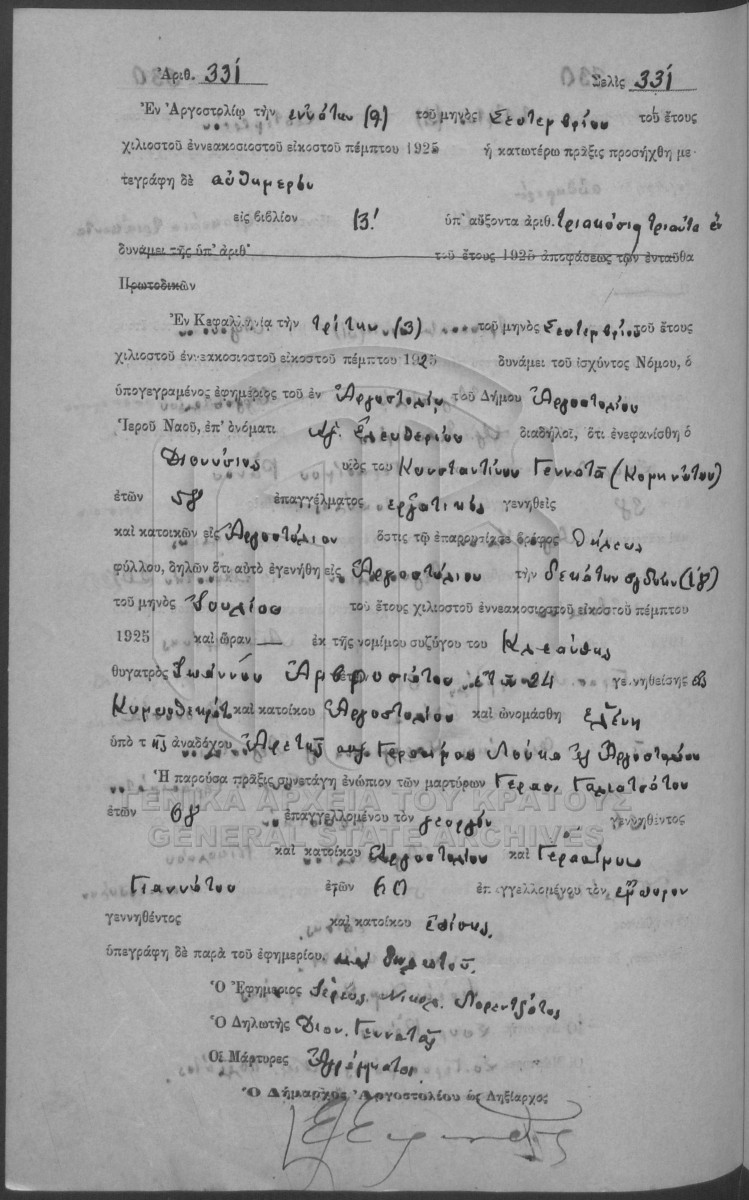 Ἀριθ. 331 Σελὶς 331
Ἐν Ἀργοστολίῳ τὴν ἐννάτην (9) τοῦ μηνὸς Σεπτεμβρίου τοῦ ἔτους
χιλιοστοῦ ἐννεακοσιοστοῦ εἰκοστοῦ πέμπτου 1925 ἡ κατωτέρω πρᾶξις προσήχθη με-
τεγράφη δὲ αὐθημερὸν
εἰς βιβλίον Β' ὑπ' αὔξοντα ἀριθ. τριακόσια τριάντα ἓν
δυνάμει τῆς ὑπ' ἀριθ' τοῦ ἔτους 1925 ἀποφάσεως τῶν ἐνταῦθα
Πρωτοδικῶν
Ἐν Κεφαλληνίᾳ τὴν τρίτην (3) τοῦ μηνὸς Σεπτεμβρίου τοῦ ἔτους
χιλιοστοῦ ἐννεακοσιοστοῦ εἰκοστοῦ πέμπτου 1925 δυνάμει τοῦ ἰσχύντος Νόμου, ὁ
ὑπογεγραμένος ἐφημέριος τοῦ ἐν Ἀργοστολίῳ τοῦ Δήμου Ἀργοστολίου
Ἱεροῦ Ναοῦ, ἐπ' ὀνόματι Ἁγ. Ἐλευθερίου διαδηλοῖ, ὅτι ἐνεφανίσθη ὁ
Διονύσιος υἱὸς του Κωνσταντίνου Γεννατᾶ (Κομηνάτου)
ἐτῶν 58 ἐπαγγέλματος ἐργατικὸς γενηθεὶς
καὶ κατοικῶν εἰς Ἀργοστόλιον ὅστις τῷ ἐπαρρουσίασε βρέφος θήλεως
φύλλου, δηλῶν ὅτι αὐτὸ ἐγενήθη εἰς Ἀργοστόλιον τὴν δεκάτην ὀγδόην (18)
τοῦ μηνὸς Ἰουλίου τοῦ ἔτους χιλιοστοῦ ἐννεακοσιοστοῦ εἰκοστοῦ πέμπτου
1925 καὶ ὥραν — ἐκ τῆς νομίμου συζύγου του Κλεάνθης
θυγατρὸς Ἰωάννου Ἀμβροσιάτου ἐτῶν 24 γεννηθείσης εἰς
καὶ κατοίκου Ἀργοστολίου καὶ ὠνομάσθη Ἑλένη
ὑπὸ τῆς ἀναδόχου Ἀρετῆς συζ. Γερασίμου Λούκα ἐξ Ἀργοστολίου
Ἡ παροῦσα πρᾶξις συνετάγη ἐνώπιον τῶν μαρτύρων Γερασ. Γαλιατσάτου
ἐτῶν 68 ἐπαγγελλομένου τὸν γεωργὸν γεννηθέντος
καὶ κατοίκου Ἀργοστολίου καὶ Γερασίμου
Γιαννάτου ἐτῶν 60 ἐπαγγελλομένου τὸν ἔμπορον
γεννηθέντος καὶ κατοίκου ἐπίσης
ὑπεγράφη δὲ παρὰ τοῦ ἐφημερίου, καὶ δηλωτοῦ.
Ὁ Ἐφημέριος Ἱερεὺς Νικολ. Λορεντζάτος
Ὁ Δηλωτὴς Διον. Γεννατᾶς
Οἱ Μάρτυρες Ἀγράμματοι
Ὁ Δήμαρχος Ἀργοστολίου ὡς Ληξίαρχος
ΓΕΝΙΚΑ ΑΡΧΕΙΑ ΤΟΥ ΚΡΑΤΟΥΣ
GENERAL STATE ARCHIVES